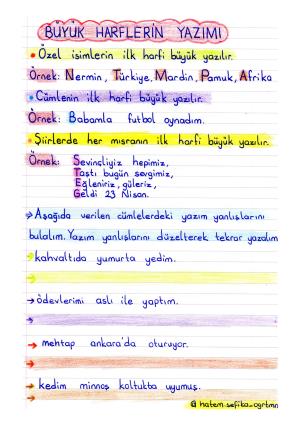 BÜYÜK HARFLERİN YAZIMI
Özel isimlerin ilk harfi büyük yazılır.
Örnek: Nermin, Türkiye, Mardin, Pamuk, Afrika
Cümlenin ilk harfi büyük yazılır.
Örnek: Babamla futbol oynadım.
Şiirlerde her mısranın ilk harfi büyük yazılır.
Örnek: Sevinçliyiz hepimiz,
Taştı bugün sevgimiz,
Eğleniriz, güleriz,
Geldi 23 Nisan.
Aşağıda verilen cümlelerdeki yazım yanlışlarını
bulalım. Yazım yanlışlarını düzelterek tekrar yazalım
kahvaltıda yumurta yedim.
ödevlerimi aslı ile yaptım.
mehtap ankara'da oturuyor.
kedim minnoş koltukta uyumuş.
@hatem.sefika_ogrtmn